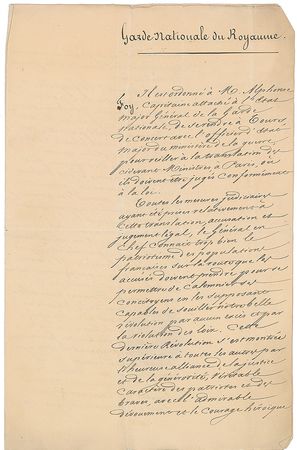 Garde Nationale du Royaume.
Il est ordonné à M. Alphonse
Foy, Capitaine attaché à l'État
major Général de la Garde
nationale, de se rendre à Tours,
de concert avec l'officier d'État
major du ministère de la guerre
pour veiller à la translation des
cidevant Ministres à Paris, où
ils doivent être jugés conformément
à la loi.
Toutes les mesures judiciaires
ayant été prises relativement à
cette translation, accusation et
jugement légal, le Général en
Chef connait trop bien le
patriotisme des populations
françaises sur la route que les
accusés doivent prendre pour se
permettre de calomnier ses
concitoyens en les supposant
capables de souiller notre belle
révolution par aucun excès et par
la violation des loix. Cette
dernière Révolution s'est montrée
supérieure à toutes les autres par
l'heureuse alliance de la justice
et de la générosité, véritable
caractère des patriotes et des
braves, avec l'admirable
dévouement et le courage héroïque